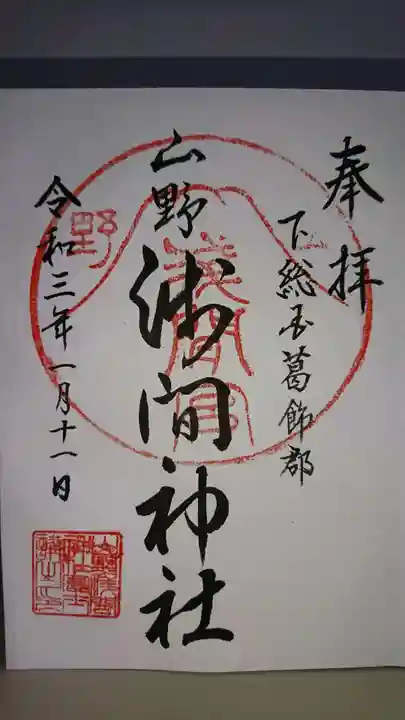 奉拝
下総国葛飾郡
山野
浅間神社
令和三年一月十一日
山
野
浅間宮